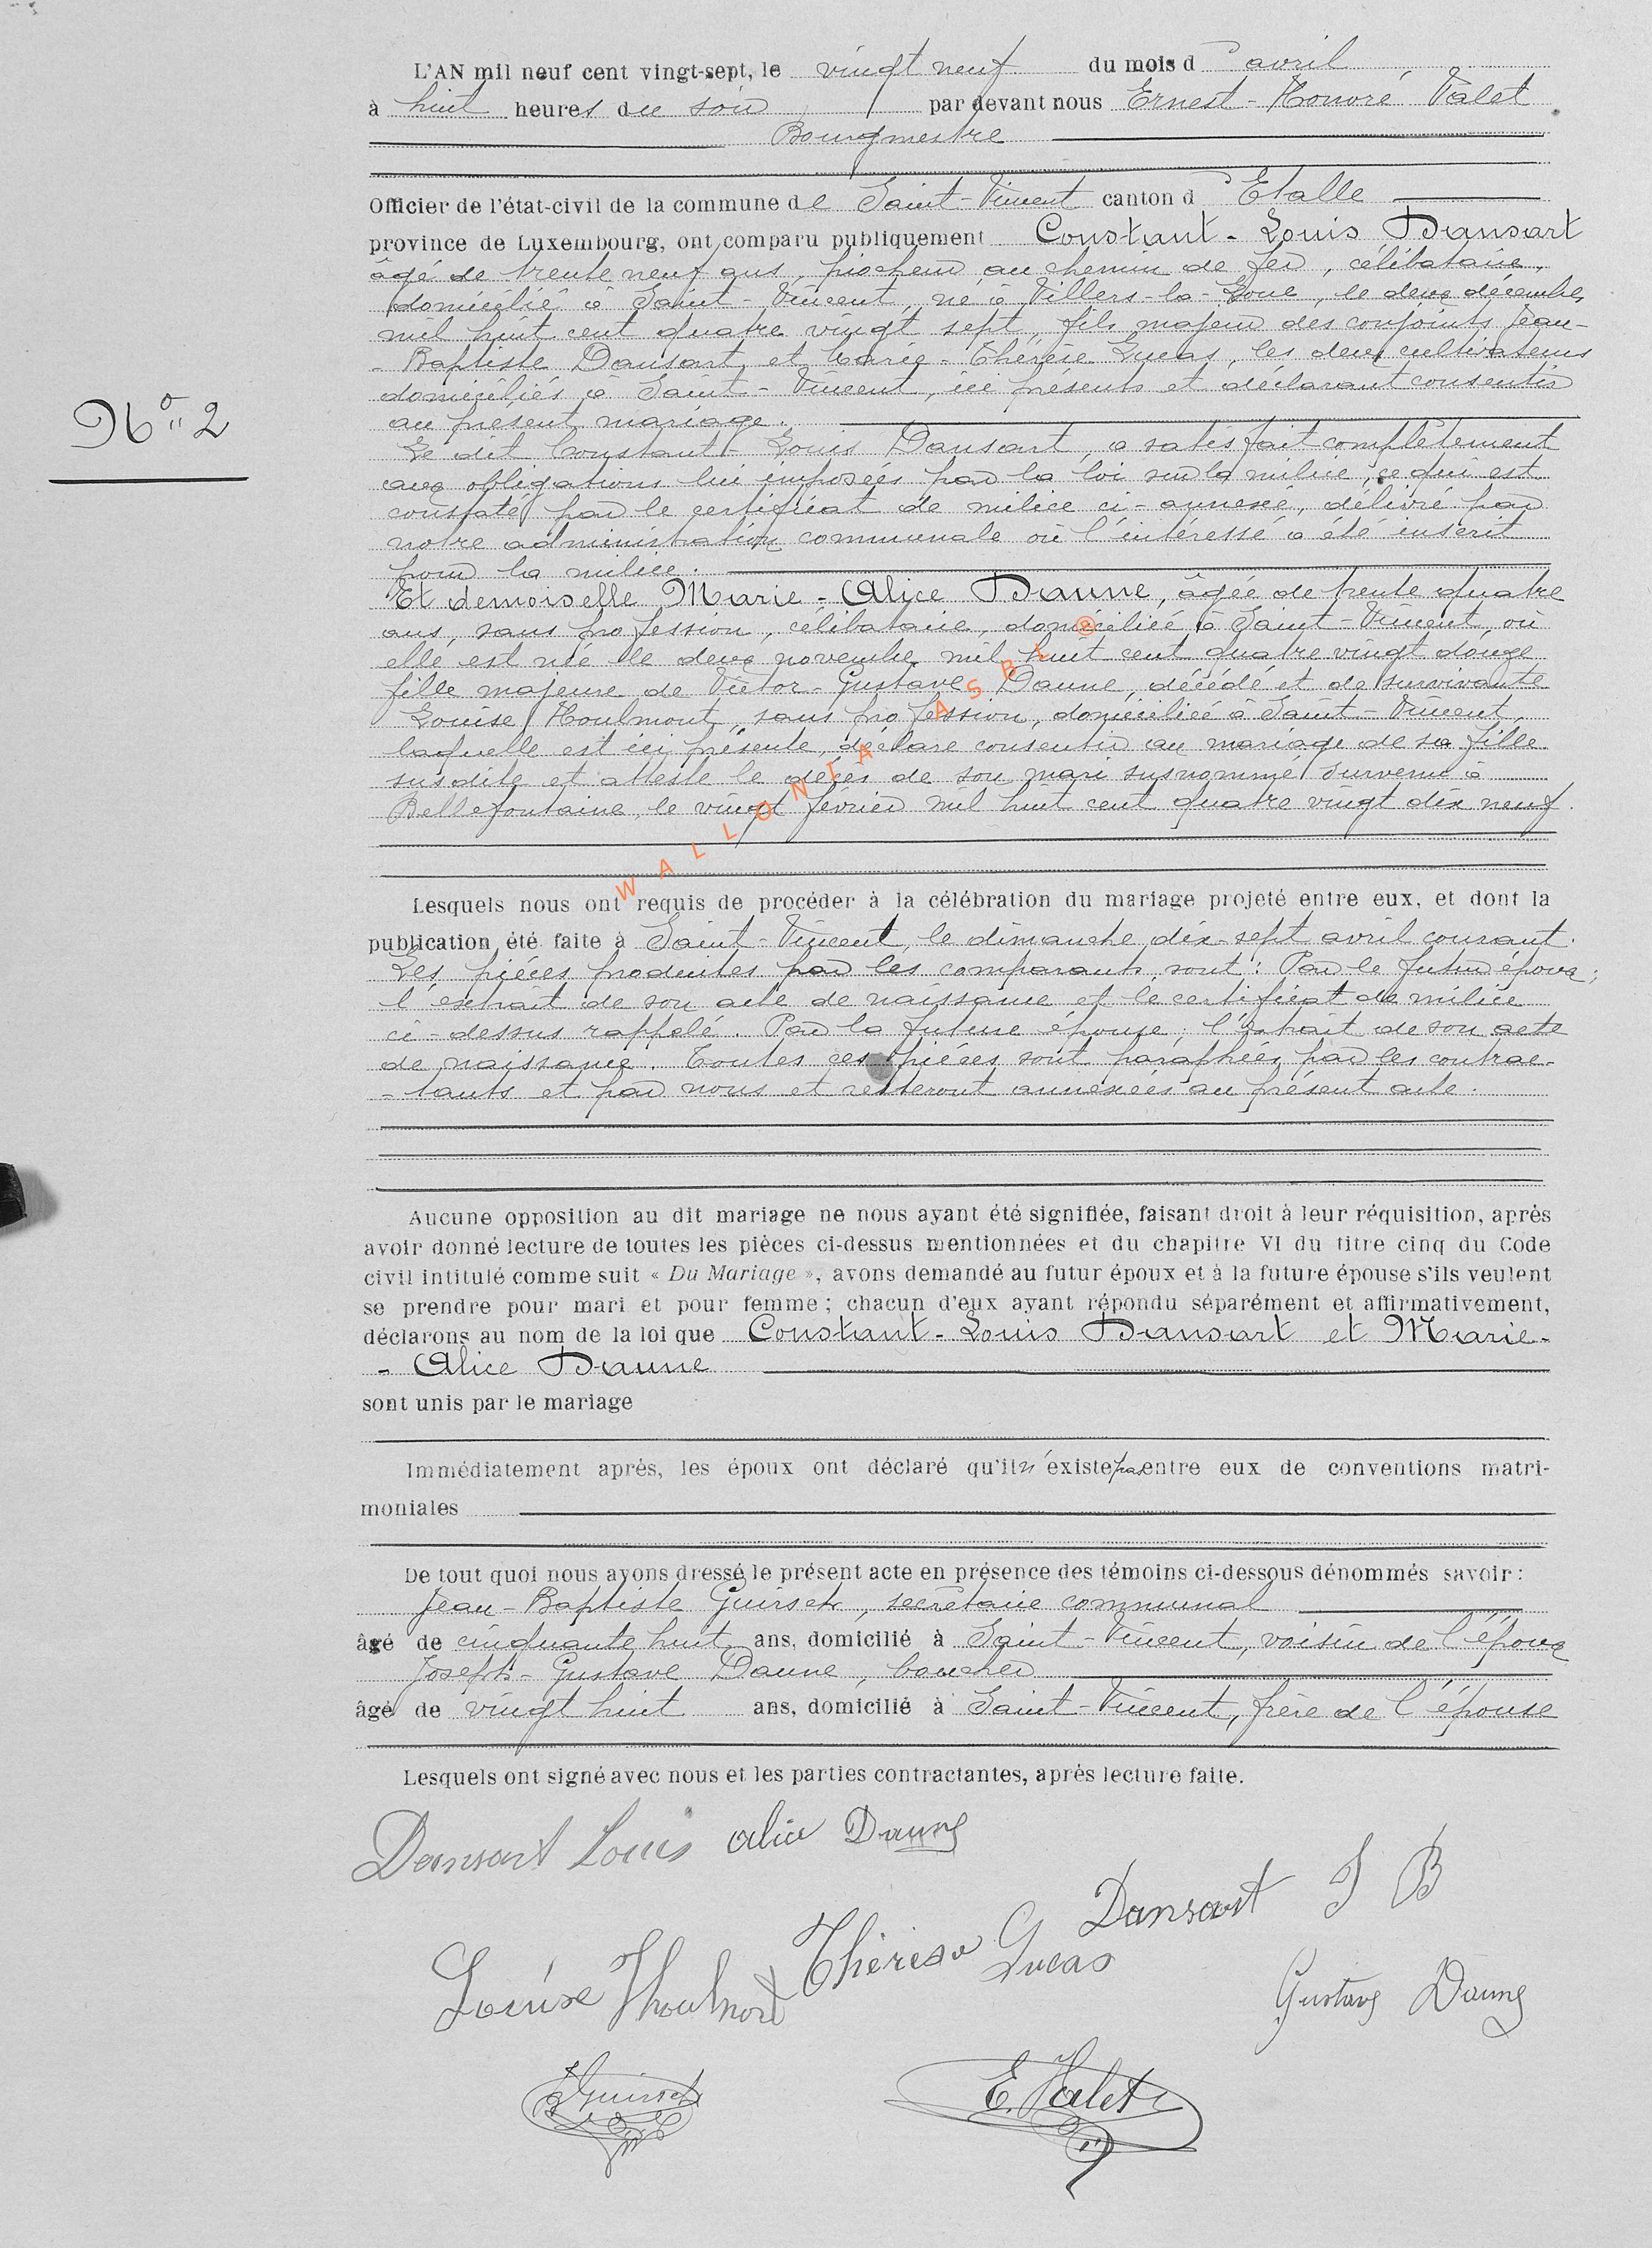 L'AN mil neuf cent vingt-sept, le vingt neuf du mois d' avril
à huit heures du soir par devant nous Ernest-Honoré Valet
Bourgmestre
Officier de l'état-civil de la commune de Saint-Vincent canton d' Etalle
province de Luxembourg, ont comparu publiquement Constant-Louis Dansart
âgé de trente neuf ans, piocheur au chemin de fer, célibataire,
domicilié à Saint-Vincent, né à Villers-la-Loue, le deux décembre
mil huit cent quatre vingt sept, fils majeur des conjoints Jean-
-Baptiste Dansart et Marie-Thérèse Lucas, les deux cultivateurs
domiciliés à Saint-Vincent, ici présents et déclarant consentir
au présent mariage.
N° 2
Le dit Constant-Louis Dansart, a satisfait complètement
aux obligations lui imposées par la loi sur la milice, ce qui est
constaté par le certificat de milice ci-annexé, délivré par
notre administration communale où l'intéressé a été inscrit
pour la milice.
Et demoiselle Marie-Alice Daune, âgée de trente quatre
ans, sans profession, célibataire, domiciliée à Saint-Vincent, où
elle est née le deux novembre mil huit cent quatre vingt douze
fille majeure de Victor-Gustave Daune, décédé et de survivante
Louise Houlmont, sans profession, domiciliée à Saint-Vincent,
laquelle est ici présente, déclare consentir au mariage de sa fille
susdite et atteste le décès de son mari susnommé survenu à
Bellefontaine, le vingt février mil huit cent quatre vingt dix neuf.
WALLONIA ASBL ®
Lesquels nous ont requis de procéder à la célébration du mariage projeté entre eux, et dont la
publication été faite à Saint-Vincent, le dimanche dix-sept avril courant.
Les pièces produites par les comparants sont: Par le futur époux;
l'extrait de son acte de naissance et le certificat de milice
ci-dessus rappelé. Par la future épouse; l'extrait de son acte
de naissance. Toutes ces pièces sont paraphées par les contrac-
-tants et par nous et resteront annexées au présent acte.
Aucune opposition au dit mariage ne nous ayant été signifiée, faisant droit à leur réquisition, après
avoir donné lecture de toutes les pièces ci-dessus mentionnées et du chapitre VI du titre cinq du Code
civil intitulé comme suit « Du Mariage », avons demandé au futur époux et à la future épouse s'ils veulent
se prendre pour mari et pour femme; chacun d'eux ayant répondu séparément et affirmativement,
déclarons au nom de la loi que Constant-Louis Dansart et Marie-
-Alice Daune
sont unis par le mariage
Immédiatement après, les époux ont déclaré qu'il n'existe pas entre eux de conventions matri-
moniales
De tout quoi nous avons dressé le présent acte en présence des témoins ci-dessous dénommés savoir:
Jean-Baptiste Guirsch, secrétaire communal
âgé de cinquante huit ans, domicilié à Saint-Vincent, voisin de l'époux
Joseph-Gustave Daune, boucher
âgé de vingt huit ans, domicilié à Saint-Vincent, frère de l'épouse
Lesquels ont signé avec nous et les parties contractantes, après lecture faite.
Dansart Louis alice Daune
Dansart J B
Louise Houlmont Thérèse Lucas
Gustave Daune
Guirsch
E. Valet